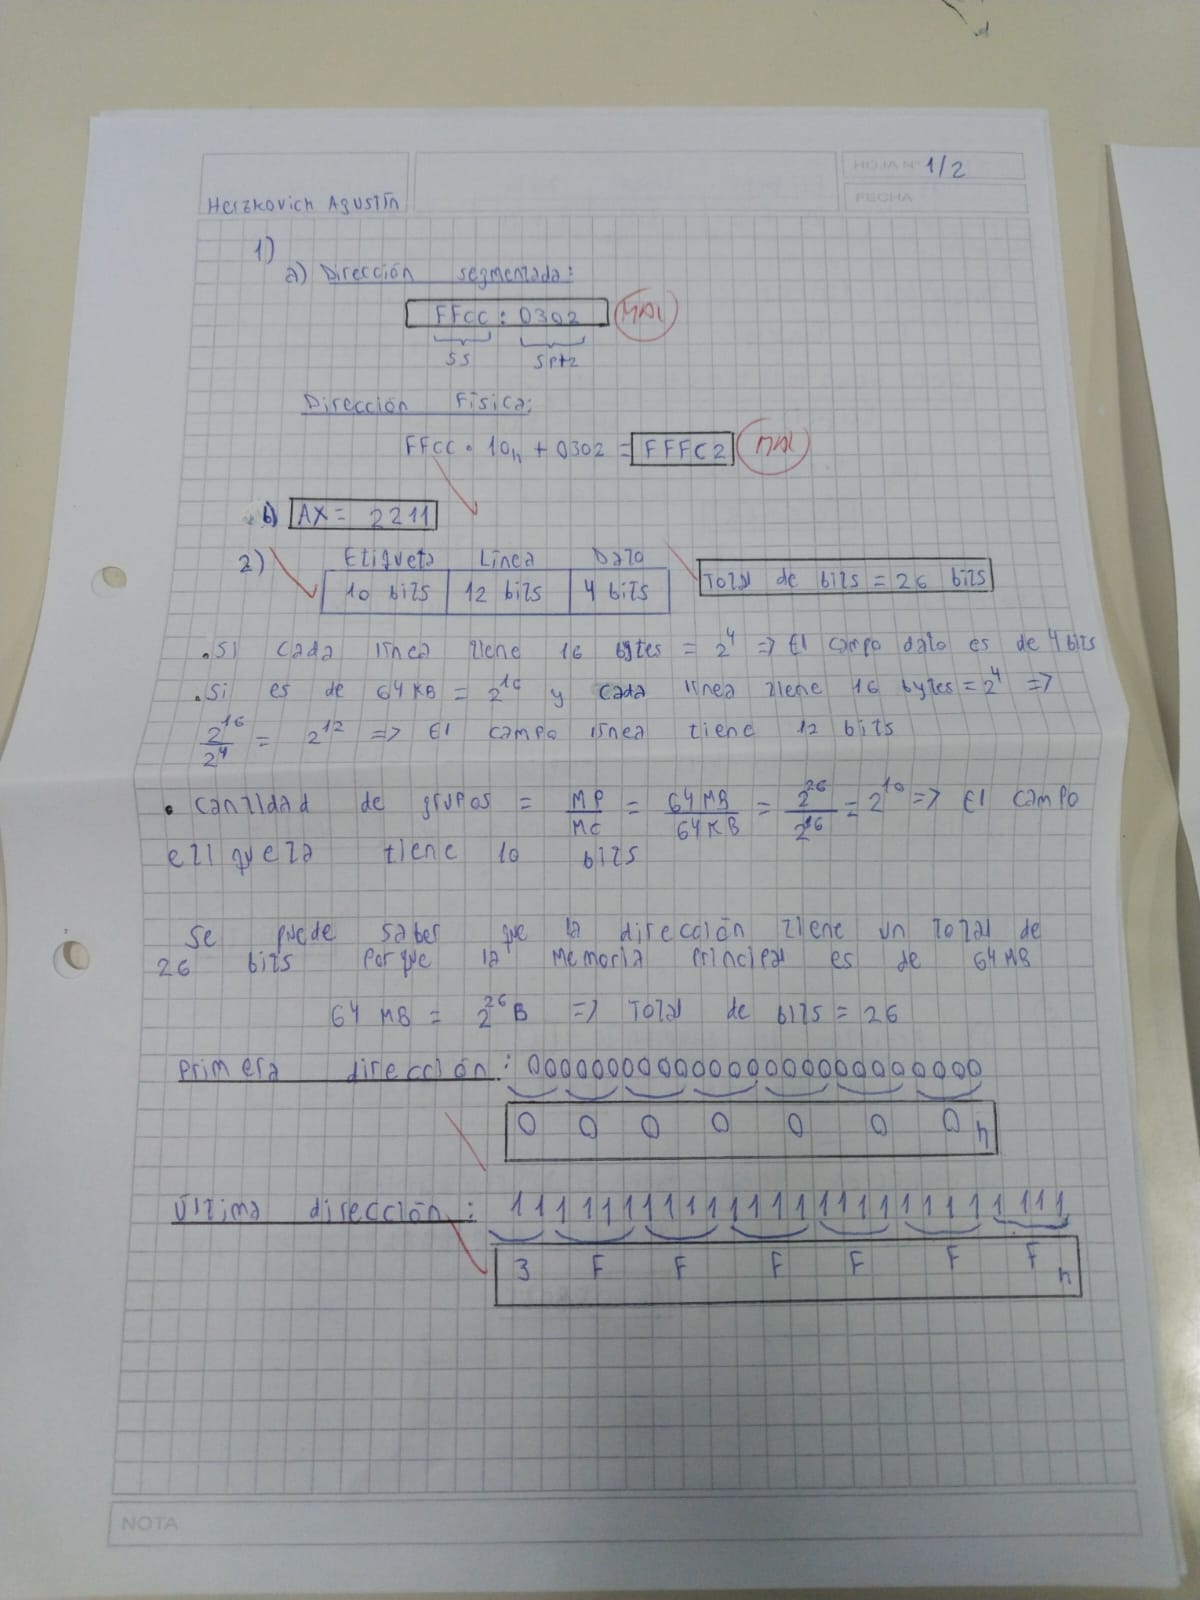 HOJA N° 1/2
Herzkovich Agustín
FECHA
1)
a) Dirección segmentada:
FFCC : 0302 MAL
SS SPtr
Dirección Física:
FFCC · 10h + 0302 = FFFC2 MAL
b) AX = 2211
2) Etiqueta Línea Dato
10 bits 12 bits 4 bits Total de bits = 26 bits
. Si cada línea tiene 16 bytes = 2^4 => El campo dato es de 4 bits
. Si es de 64 KB = 2^16 y cada línea tiene 16 bytes = 2^4 =>
2^16/2^4 = 2^12 => El campo línea tiene 12 bits
• cantidad de grupos = MP/MC = 64 MB/64 KB = 2^26/2^16 = 2^10 => El campo
etiqueta tiene 10 bits
Se puede saber que la dirección tiene un total de
26 bits porque la memoria principal es de 64 MB
64 MB = 2^26 B => Total de bits = 26
Primera dirección: 00000000000000000000000000
0 0 0 0 0 0 0 h
Última dirección: 11111111111111111111111111
3 F F F F F F h
NOTA